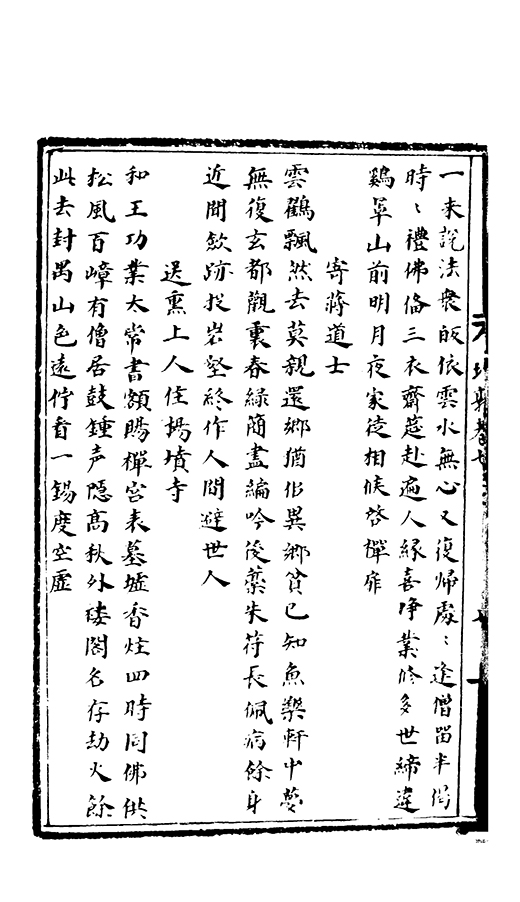 一来說法衆皈依雲水無心又復帰處〻逢僧留半偈
時〻禮佛偹三衣齋筵赴遍人縁喜浄業修多世締違
鷄阜山前明月夜家徒相候啓禪扉
寄蔣道士
雲鶴飄然去莫親還鄉猶作異鄉貧已知魚樂軒中夢
無復玄都觀裏春緑簡盡編吟後藁朱符長佩病餘身
近聞歛跡投岩壑終作人間避世人
送熏上人住楊墳寺
和王功業太常書額賜禪宮表墓墟香炷四時同佛供
松風百嶂有僧居鼓鍾声隠高秋外楼閣名存劫火餘
此去封禺山色遠佇看一錫度空虛